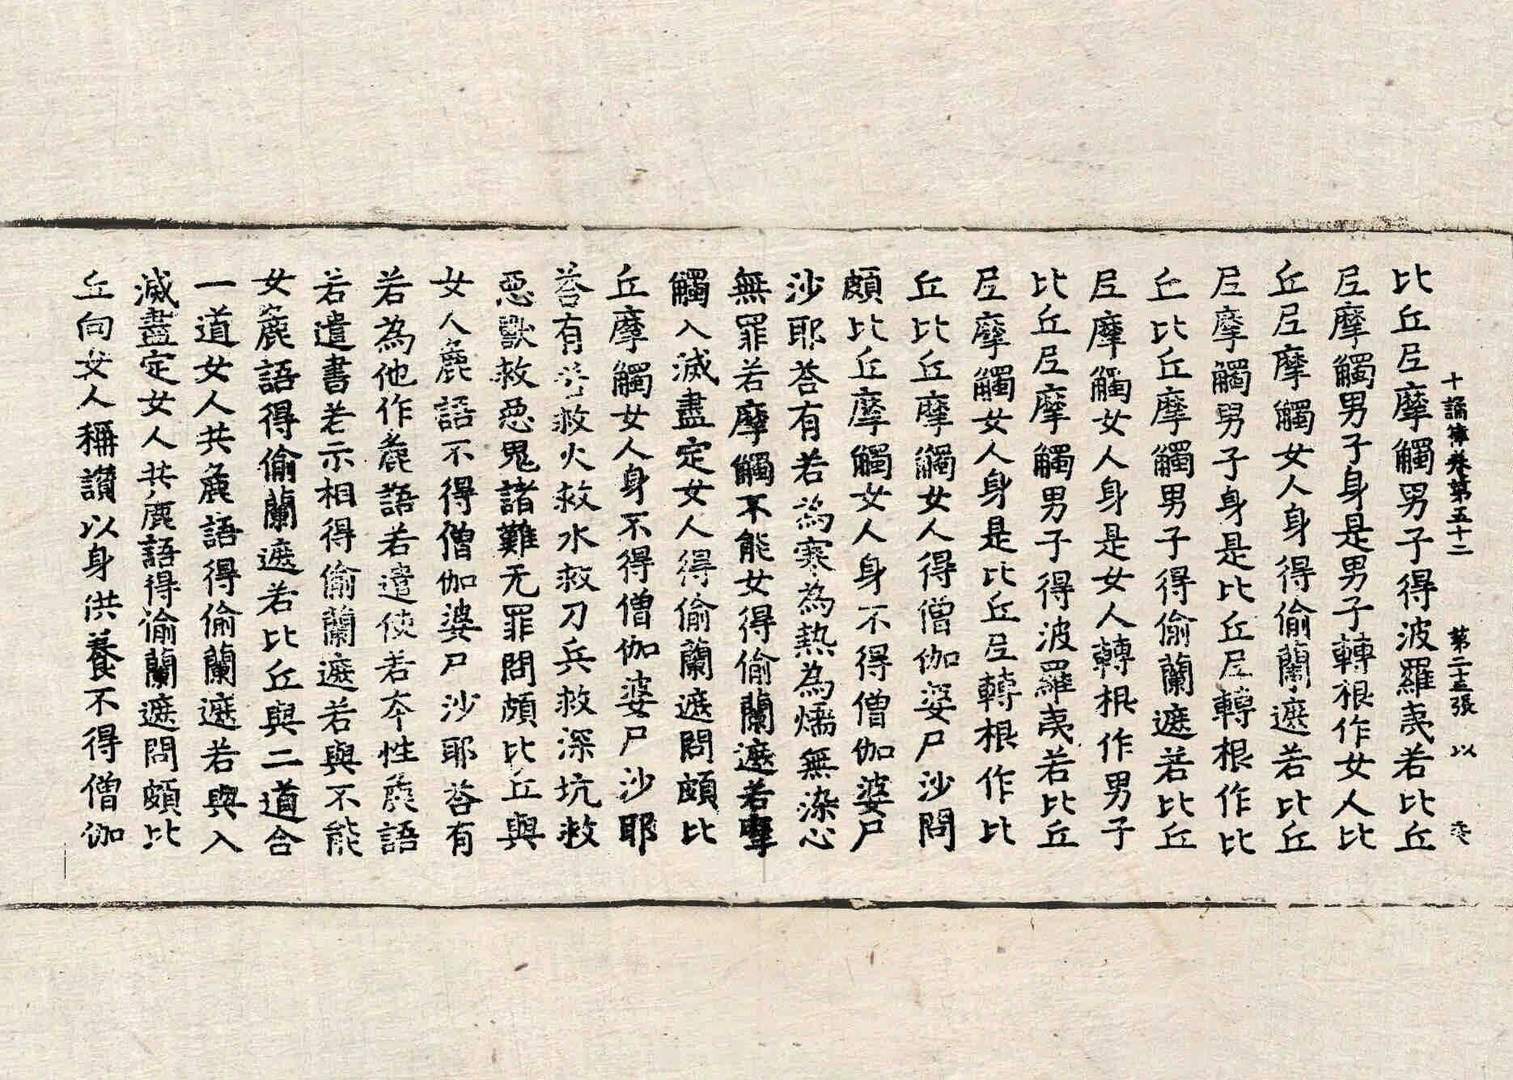 十誦律卷第五十二 第二十三張 以
比丘尼摩觸男子得波羅夷若比丘
尼摩觸男子身是男子轉根作女人比
丘尼摩觸女人身得偷蘭遮若比丘
尼摩觸男子身是比丘尼轉根作比
丘比丘摩觸男子得偷蘭遮若比丘
尼摩觸女人身是女人轉根作男子
比丘尼摩觸男子得波羅夷若比丘
尼摩觸女人身是比丘尼轉根作比
丘比丘摩觸女人得僧伽婆尸沙問
頗比丘摩觸女人身不得僧伽婆尸
沙耶荅有若為寒為熱為燸無染心
無罪若摩觸不能女得偷蘭遮若摩
觸入滅盡定女人得偷蘭遮問頗比
丘摩觸女人身不得僧伽婆尸沙耶
荅有若救火救水救刀兵救深坑救
惡獸救惡鬼諸難无罪問頗比丘與
女人麁語不得僧伽婆尸沙耶荅有
若為他作麁語若遣使若夲性麁語
若遣書若示相得偷蘭遮若與不能
女麁語得偷蘭遮若比丘與二道合
一道女人共麁語得偷蘭遮若與入
滅盡定女人共麁語得偷蘭遮問頗比
丘向女人稱讃以身供養不得僧伽